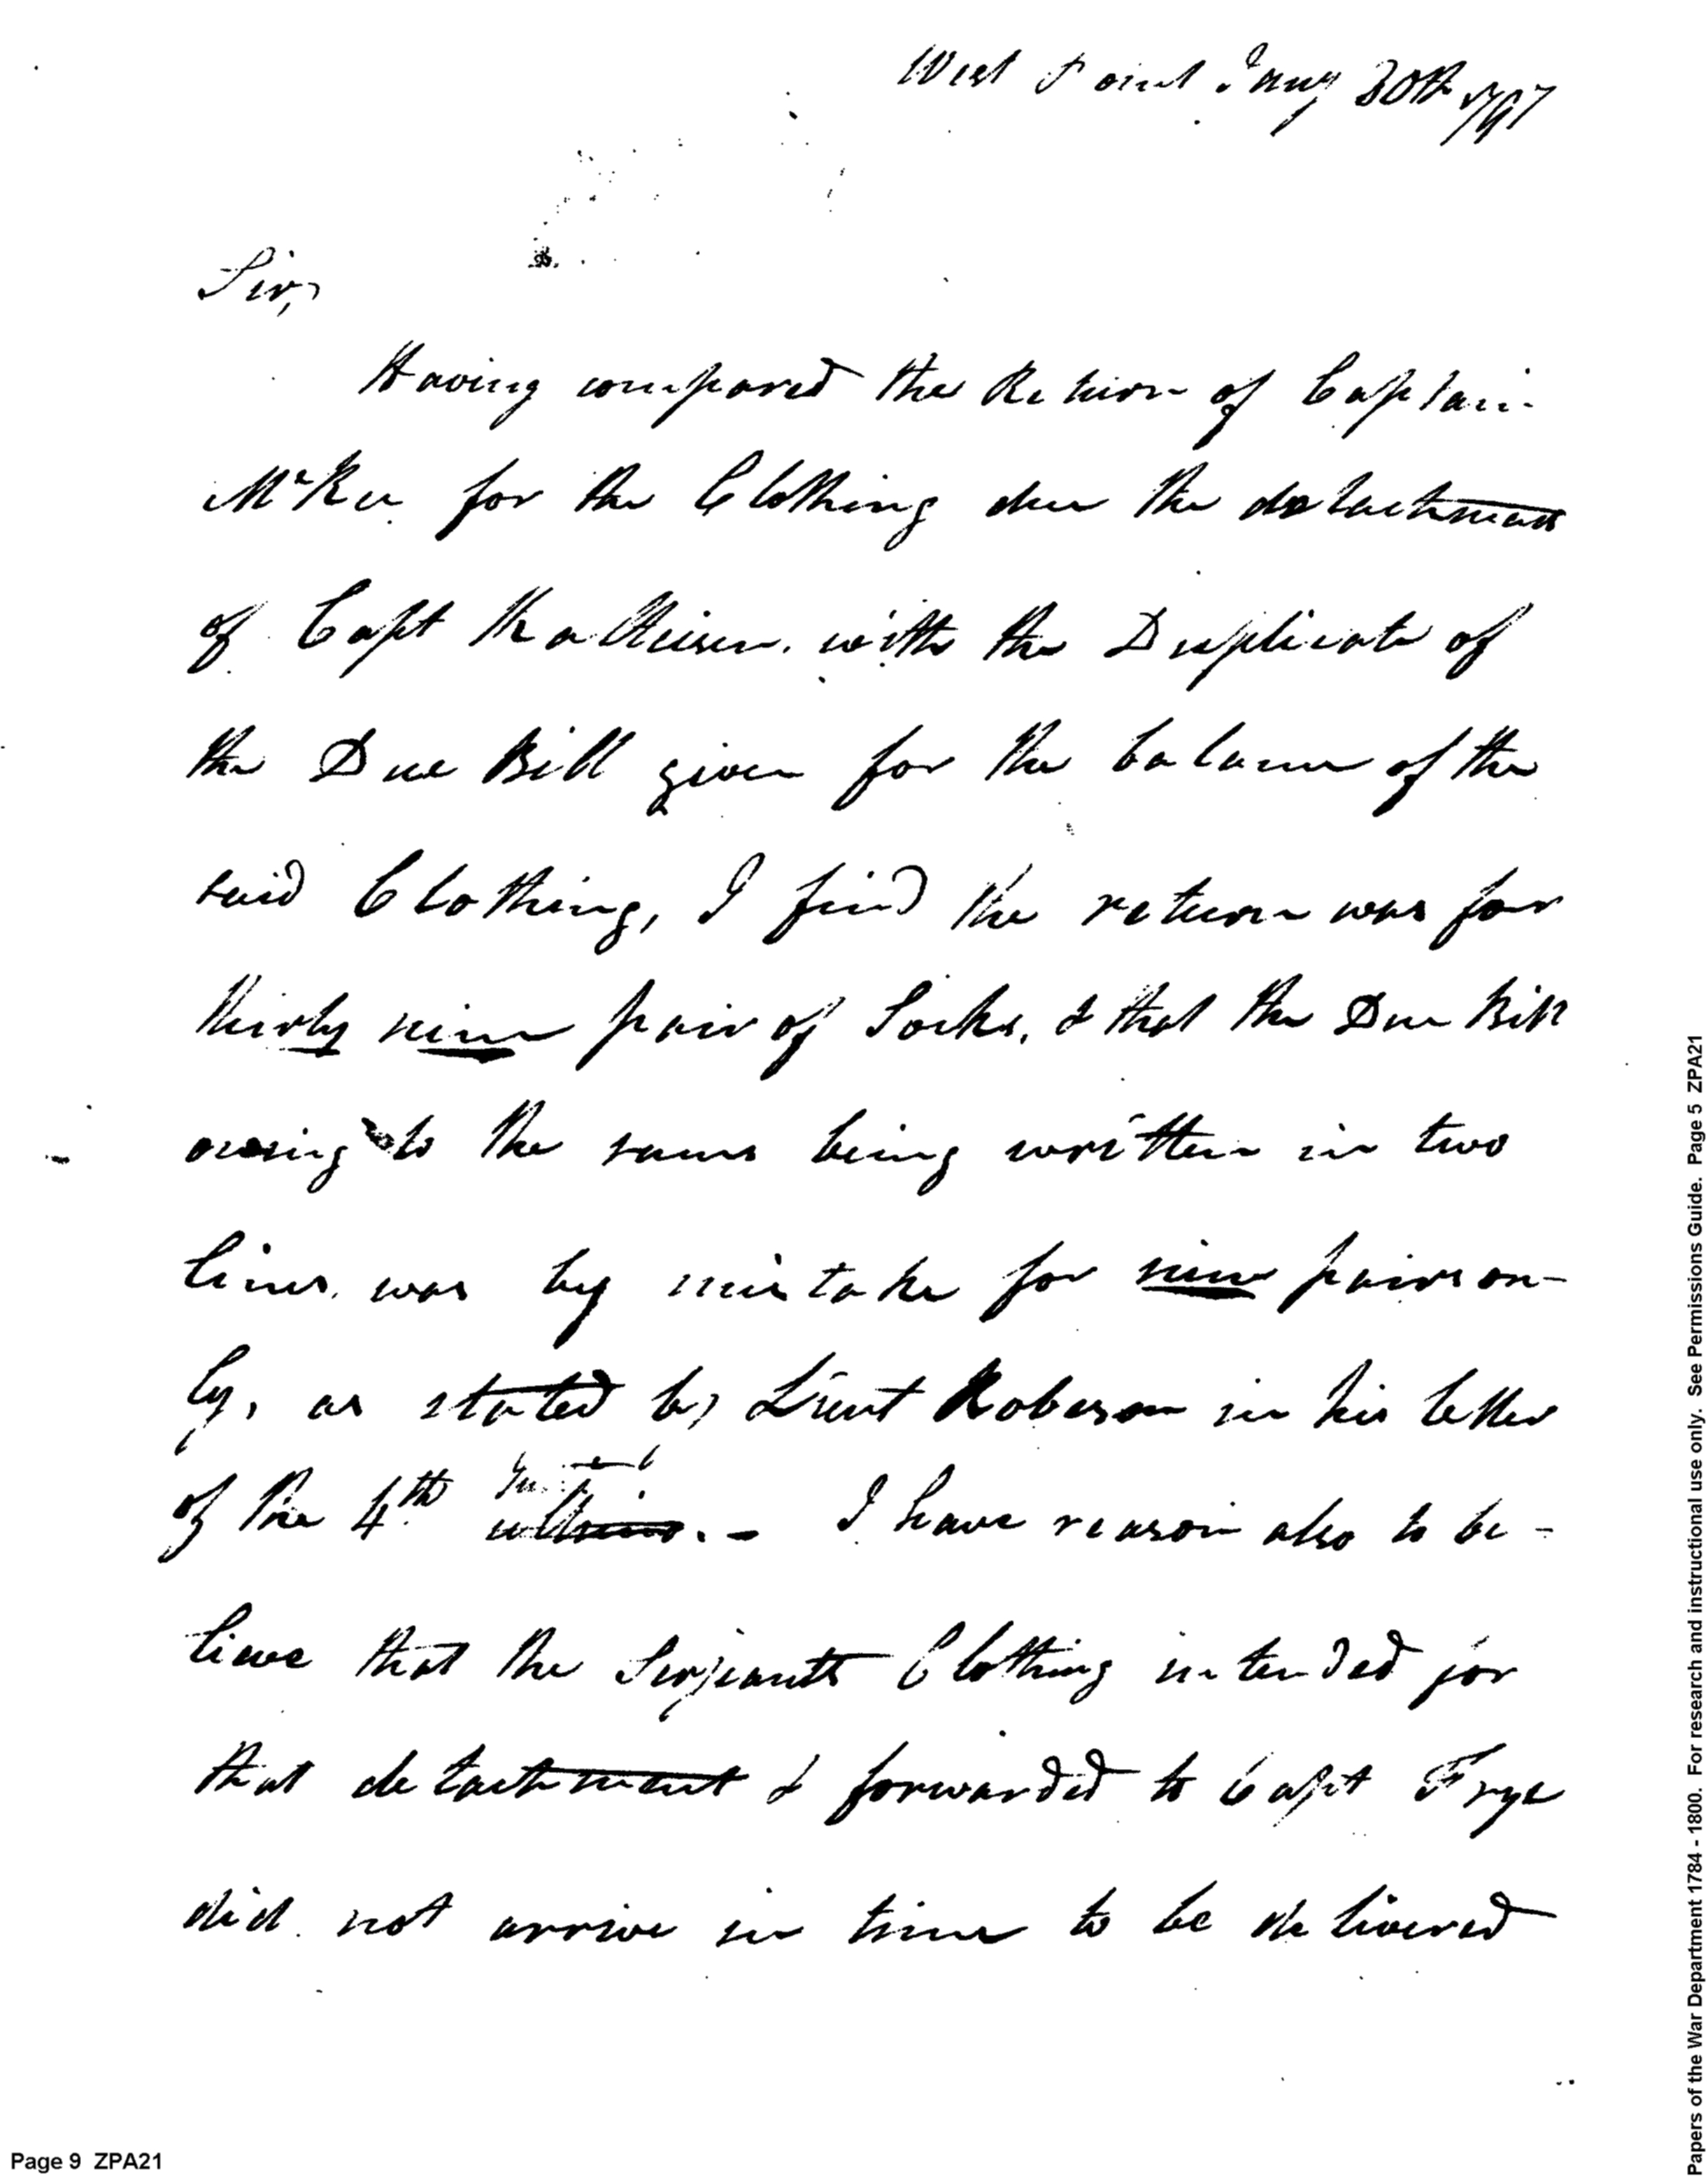 West Point Jany 30th 1797
Sir,
Having compared the Return of Captain
McKee for the Clothing due the detachment
of Capt Kalteisen with the Duplicate of
the Due Bill given for the balance of the
said Clothing, I find the return was for
thirty nine pair of Socks, & that the Due Bill
owing to the same being written in two
lines was by mistake for nine pairs on-
ly, as stated by Lieut Roberson in his letter
of the 4th Instant ultimo. - I have reason also to be-
lieve that the Serjeants Clothing intended for
that detachment & forwarded to Capt Frye
did not arrive in time to be delivered
Page 9 ZPA21
Papers of the War Department 1784 - 1800. For research and instructional use only. See Permissions Guide. Page 5 ZPA21